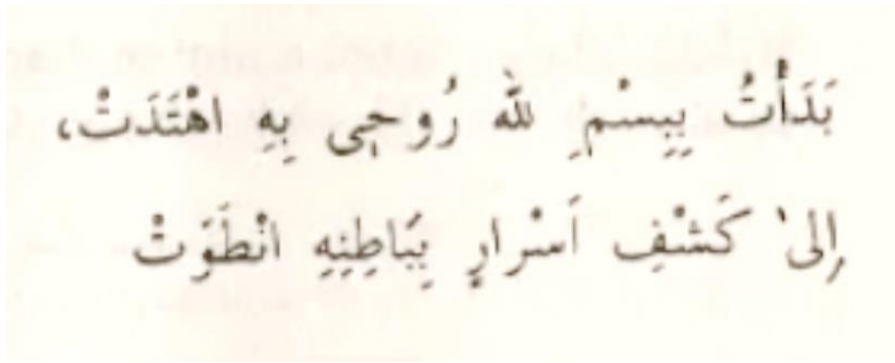 بَدَأْتُ بِبِسْمِ لله رُوحِى بِهِ اهْتَدَتْ،
إِلىٰ كَشْفِ اَسْرارٍ بِبَاطِنِهِ انْطَوَتْ